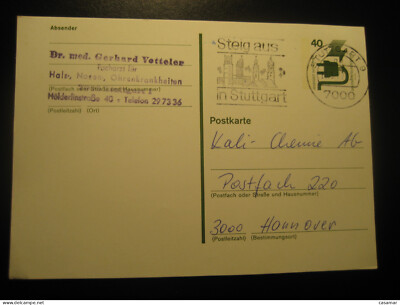 Absender
Dr. med. Gerhard Votteler
Facharzt für
Hals, Nasen, Ohrenkrankheiten
(Postfach oder Straße und Hausnummer)
Hölderlinstraße 40 - Telefon 29 73 36
(Postleitzahl) (Ort)
Steig aus
in Stuttgart
40
7000
Postkarte
Kali-Chemie AG
Postfach 220
(Postfach oder Straße und Hausnummer)
3000 Hannover
(Postleitzahl) (Bestimmungsort)